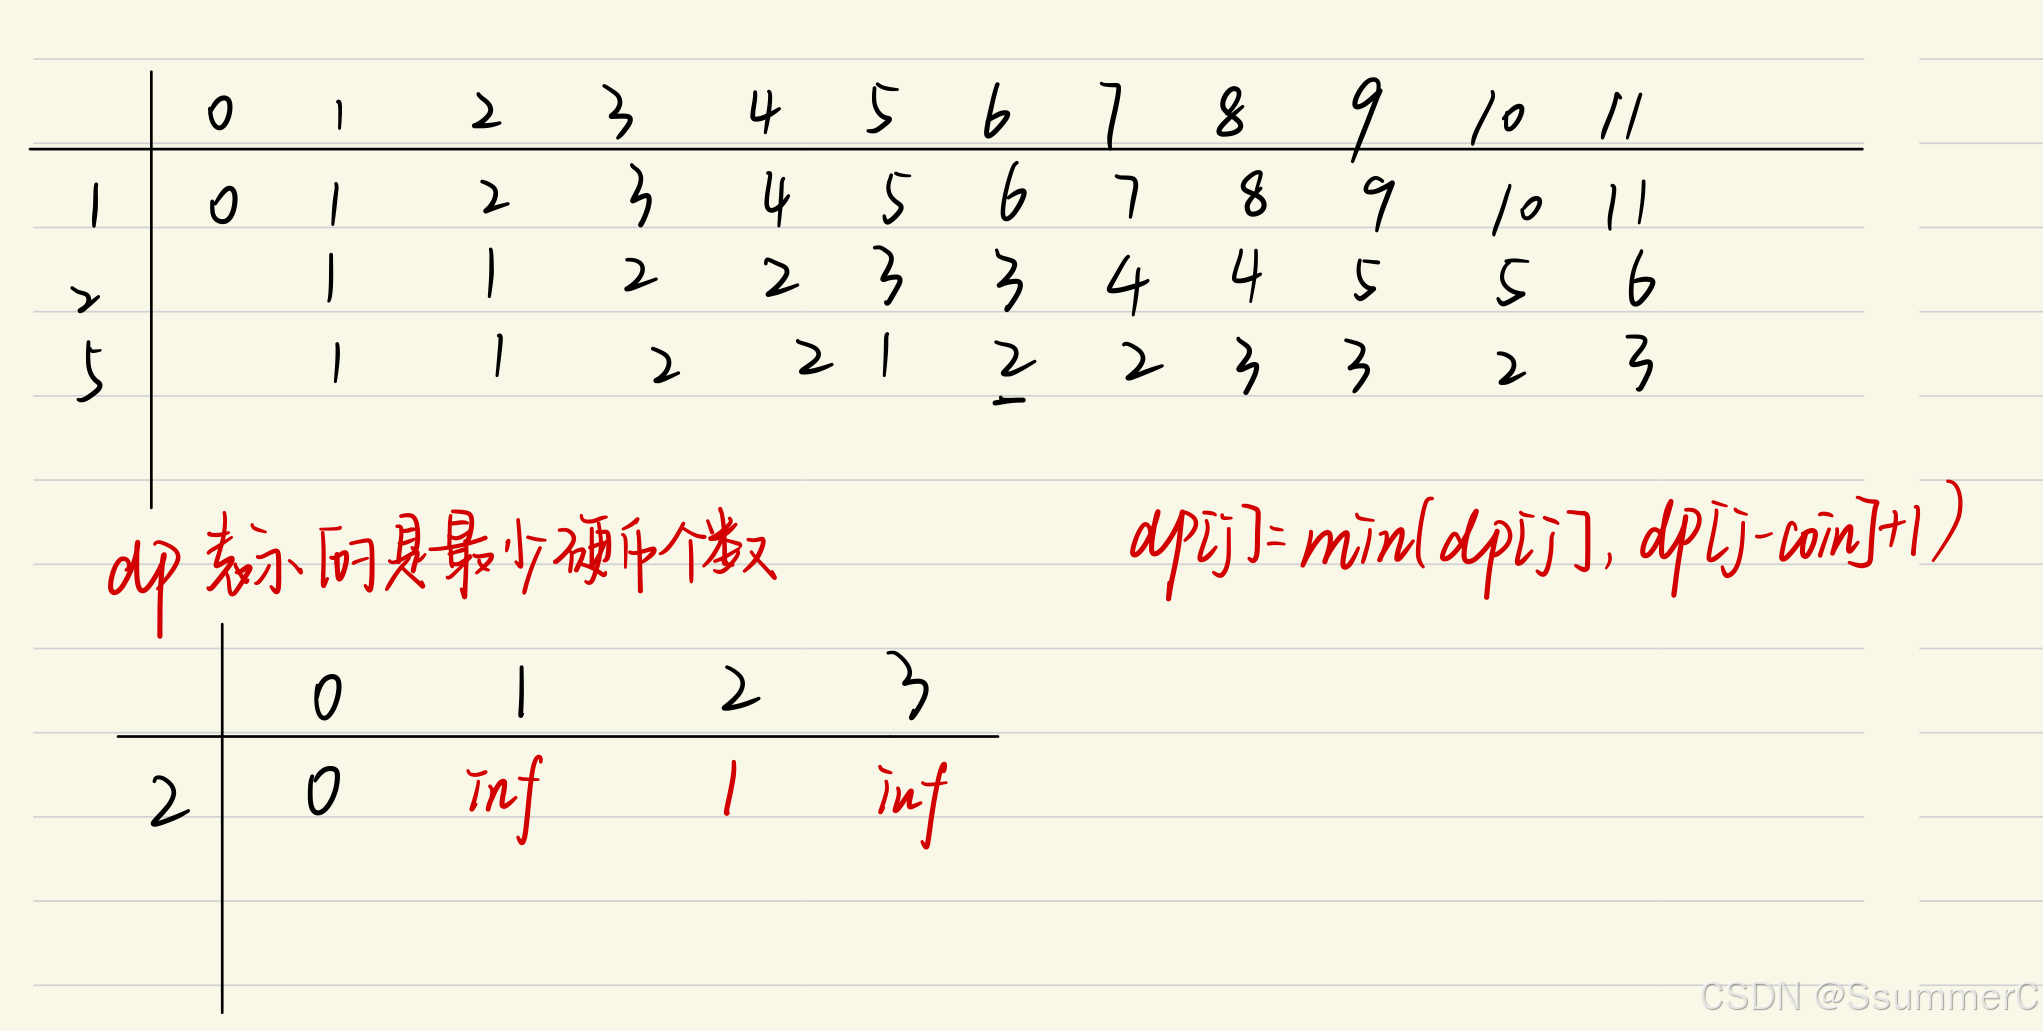 0 1 2 3 4 5 6 7 8 9 10 11
1 0 1 2 3 4 5 6 7 8 9 10 11
2 1 1 2 2 3 3 4 4 5 5 6
5 1 1 2 2 1 2 2 3 3 2 3
dp表示的是最少硬币个数
dp[j]=min(dp[j], dp[j-coin]+1)
0 1 2 3
2 0 inf 1 inf
CSDN @SsummerC